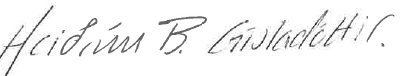 Heiðrún B. Gísladóttir.